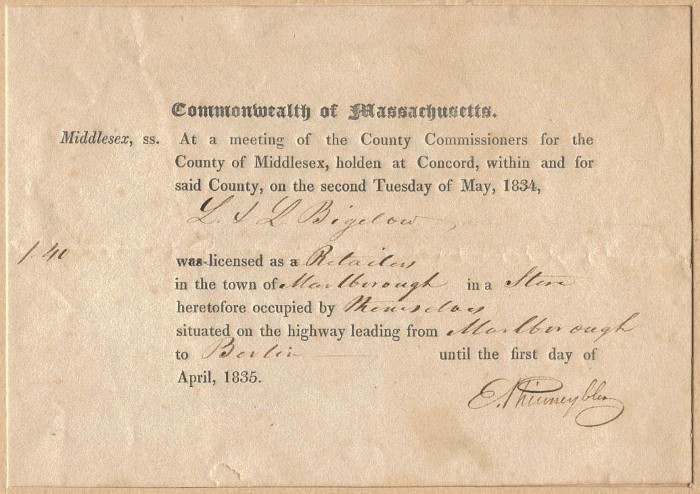 Commonwealth of Massachusetts.
Middlesex, ss. At a meeting of the County Commissioners for the
County of Middlesex, holden at Concord, within and for
said County, on the second Tuesday of May, 1834,
L. & L Bigelow
1.40
was licensed as a Retailers
in the town of Marlborough in a Store
heretofore occupied by themselves
situated on the highway leading from Marlborough
to Berlin until the first day of
April, 1835.
E. Phinney Clk